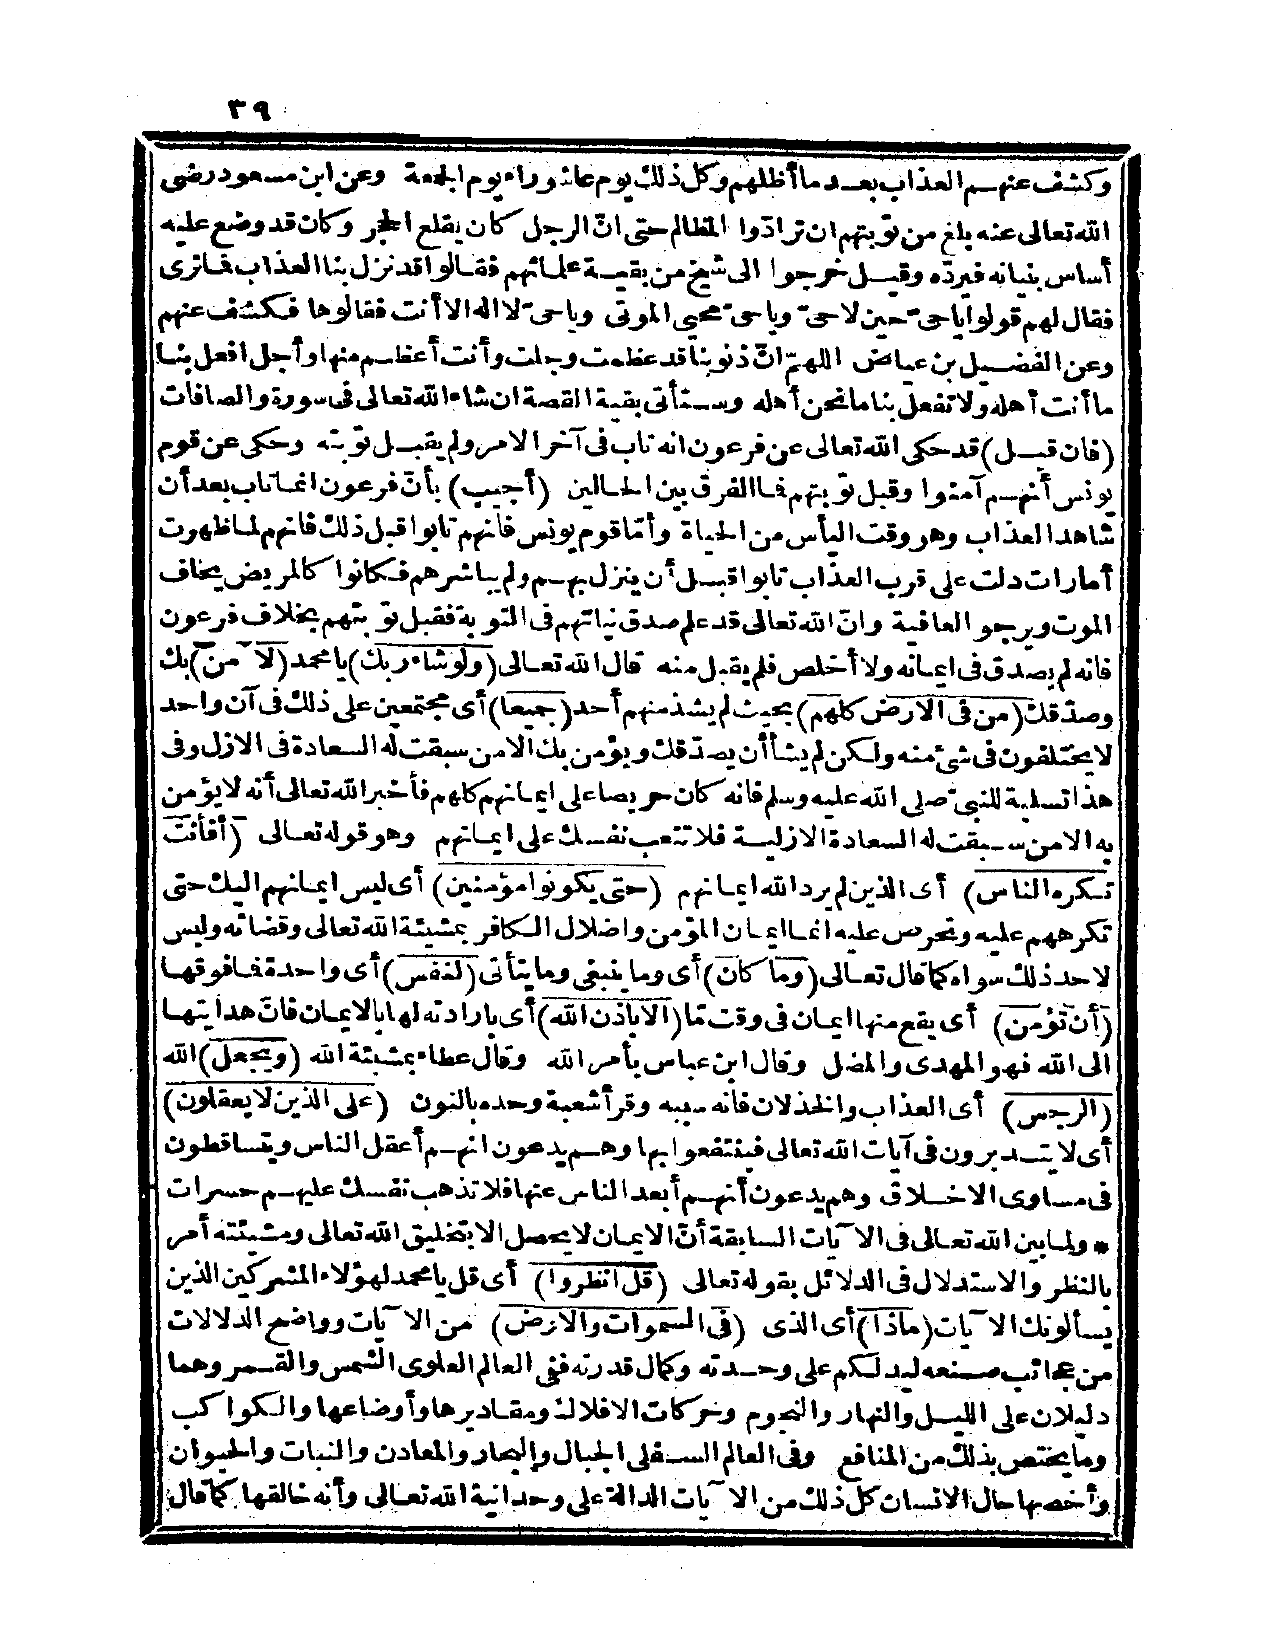 ٣٩
وكشف عنهم العذاب بعد ما أظلهم وكل ذلك يوم عاشوراء يوم الجمعة وعن ابن مسعود رضى
الله تعالى عنه بلغ من توبتهم ان ترادّوا المظالم حتى انّ الرجل كان يقلع الحجر وكان قد وضع عليه
أساس بنيانه فيردّه وقيل خرجوا الى شيخ من بقية علمائهم فقالوا قد نزل بنا العذاب فاترى
فقال لهم قولوا ياحىّ حين لاحىّ وياحىّ محيى الموتى وياحىّ لا اله الا أنت فقالوها فكشف عنهم
وعن الفضيل بن عياض اللهمّ انّ ذنوبنا قد عظمت وجلت وأنت أعظم منها وأجل افعل بنا
ما أنت أهله ولا تفعل بنا ما نحن أهله وستأتى بقية القصة ان شاء الله تعالى فى سورة والصافات
(فان قيل) قد حكى الله تعالى عن فرعون انه تاب فى آخر الامر ولم يقبل توبته وحكى عن قوم
يونس أنهم آمنوا وقبل توبتهم فما الفرق بين الحالين (أجيب) بأنّ فرعون انما تاب بعد أن
شاهد العذاب وهو وقت اليأس من الحياة وأمّا قوم يونس فانهم تابوا قبل ذلك فانهم لما ظهرت
أمارات دلت على قرب العذاب تابوا قبل أن ينزل بهم ولم يباشرهم فكانوا كالمريض يخاف
الموت ويرجو العافية وانّ الله تعالى قد علم صدق نياتهم فى التوبة فقبل توبتهم بخلاف فرعون
فانه لم يصدق فى ايمانه ولا أخلص فلم يقبل منه قال الله تعالى (ولو شاء ربك) يا محمد (لآمن) بك
وصدّقك (من فى الارض كلهم) بحيث لم يشذ منهم أحد (جميعا) أى مجتمعين على ذلك فى آن واحد
لا يختلفون فى شئ منه ولكن لم يشأ أن يصدّقك ويؤمن بك الا من سبقت له السعادة فى الازل وفى
هذا تسلية للنبىّ صلى الله عليه وسلم فانه كان حريصا على ايمانهم كلهم فأخبر الله تعالى أنه لا يؤمن
به الا من سبقت له السعادة الازلية فلا تتعب نفسك على ايمانهم وهو قوله تعالى (أفأنت
تكره الناس) أى الذين لم يرد الله ايمانهم (حتى يكونوا مؤمنين) أى ليس ايمانهم اليك حتى
تكرههم عليه وتحرص عليه انما ايمان المؤمن واضلال الكافر بمشيئة الله تعالى وقضائه وليس
لاحد ذلك سواه كما قال تعالى (وما كان) أى وما ينبغى وما يتأتى (لنفس) أى واحدة فما فوقها
(أن تؤمن) أى يقع منها ايمان فى وقت مّا (الا باذن الله) أى بارادته لها بالايمان فانّ هدايتها
الى الله فهو المهدى والمضل وقال ابن عباس بأمر الله وقال عطاء بمشيئة الله (ويجعل) الله
(الرجس) أى العذاب والخذلان فانه سببه وقرأ شعبة وحده بالنون (على الذين لا يعقلون)
أى لا يتدبرون فى آيات الله تعالى فينتفعوا بها وهم يدعون انهم أعقل الناس ويتساقطون
فى مساوى الاخلاق وهم يدعون أنهم أبعد الناس عنها فلا تذهب نفسك عليهم حسرات
* ولما بين الله تعالى فى الآيات السابقة أنّ الايمان لا يحصل الا بتخليق الله تعالى ومشيئته أمر
بالنظر والاستدلال فى الدلائل بقوله تعالى (قل انظروا) أى قل يا محمد لهؤلاء المشركين الذين
يسألونك الآيات (ماذا) أى الذى (فى السموات والارض) من الآيات وواضح الدلالات
من عجائب صنعه ليدلكم على وحدته وكمال قدرته ففى العالم العلوى الشمس والقمر وهما
دليلان على الليل والنهار والنجوم وحركات الافلاك ومقاديرها وأوضاعها والكواكب
وما يختص بذلك من المنافع وفى العالم السفلى الجبال والبحار والمعادن والنبات والحيوان
وأخصها حال الانسان كل ذلك من الآيات الدالة على وحدانية الله تعالى وأنه خالقها كما قال